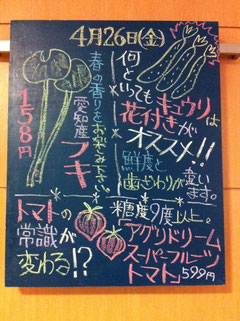 4月26日(金)
何と
いってもキュウリは
花付きが
オススメ!!
鮮度と
歯ざわりが
違います。
春の香りをお楽しみ下さい。
愛知産
フキ
158円
トマトの
常識が
変わる!?
糖度9度以上。
「アグリドリーム
スーパーフルーツ
トマト」599円